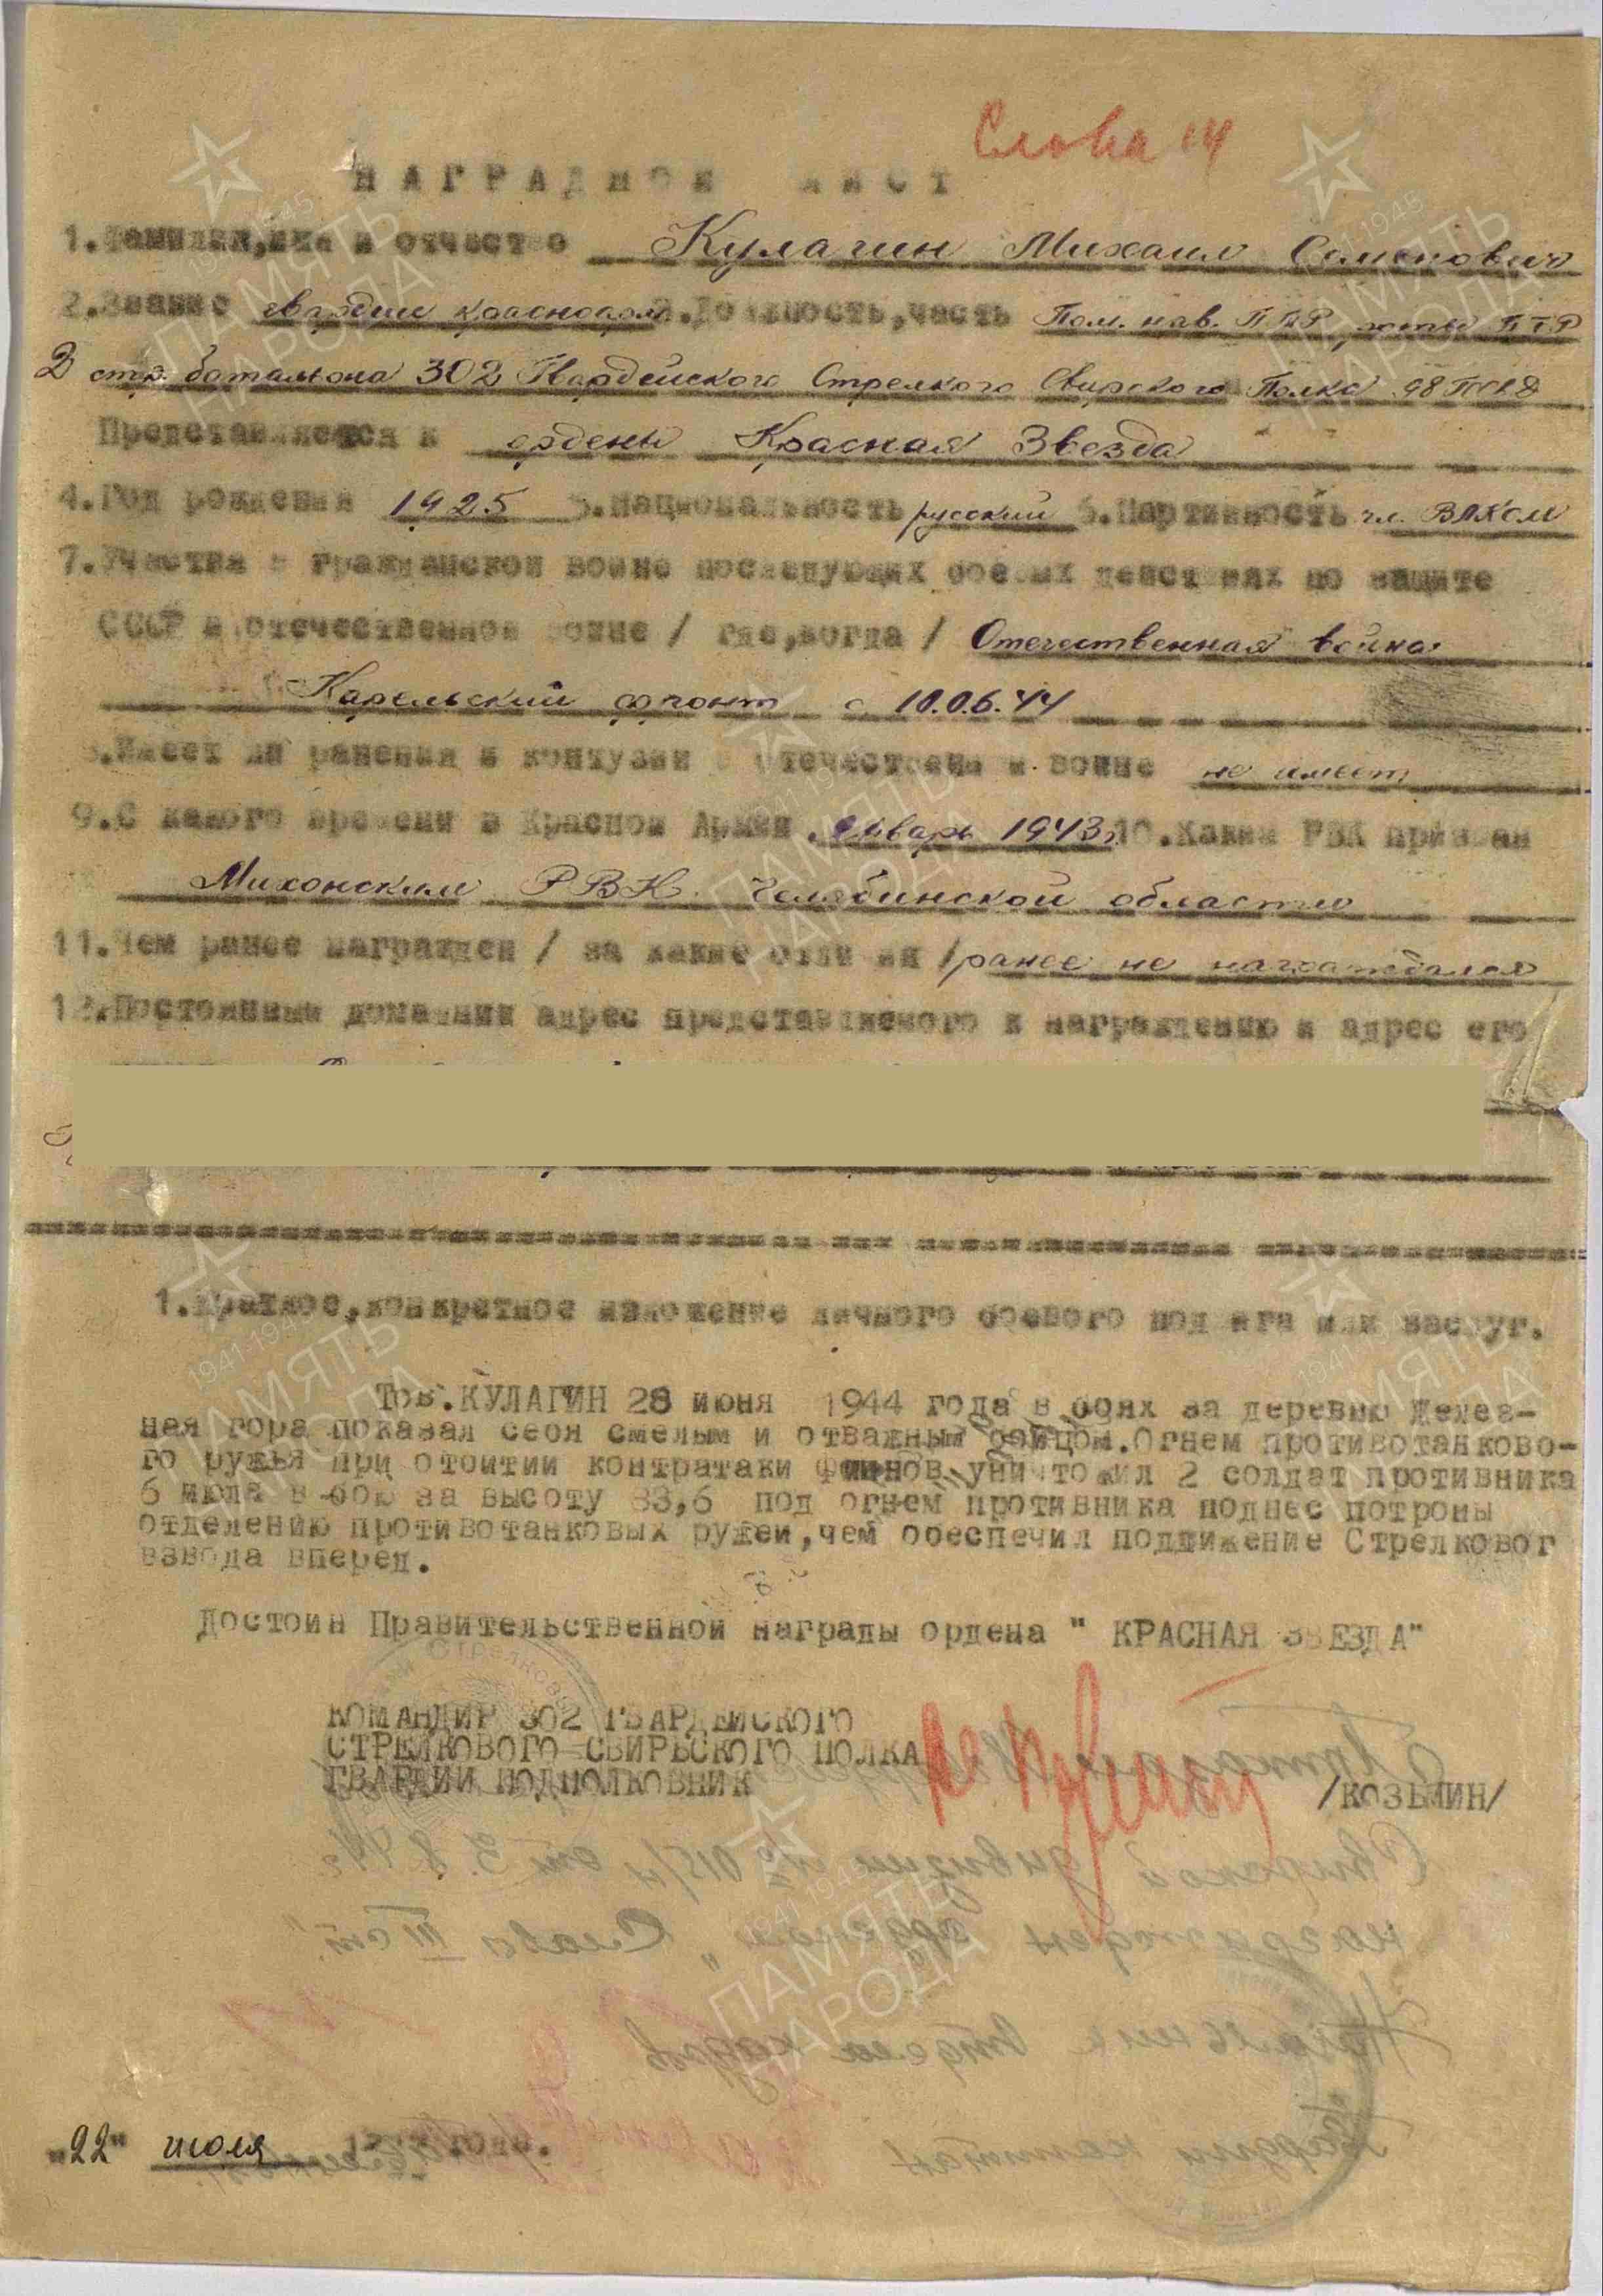 Слава III
НАГРАДНОЙ ЛИСТ
1.Фамилия,имя и отчество Кулагин Михаил Семенович
2.Звание гвардии красноарм. 3.Должность,часть Пом. нав. ПТР роты ПТР
2 стр. батальона 302 Гвардейского Стрелкого Свирского Полка 98 ГСКД
Представляется к ордену Красная Звезда
4.Год рождения 1925 5.Национальность русский 6.Партийность чл. ВЛКСМ
7.Участие в гражданской войне последующих боевых действиях по защите
СССР и отечественной войне / где,когда / Отечественная война
Карельский фронт с 10.06.44
8.Имеет ли ранения и контузии в отечественной войне не имеет
9.С какого времени в Красной Армии январь 1943г. 10.Каким РВК призван
Мехонским РВК Челябинской области
11.Чем ранее награжден / за какие отличия / ранее не награждался
12.Постоянный домашний адрес представляемого к награждению и адрес его
1.Краткое,конкретное изложение личного боевого подвига или заслуг.
Тов.КУЛАГИН 28 июня 1944 года в боях за деревню Желез-
ная гора показал себя смелым и отважным бойцом.Огнем противотанково-
го ружья при отбитии контратаки финнов уничтожил 2 солдат противника
6 июля в бою за высоту 83,6 под огнем противника поднес потроны
отделению противотанковых ружей,чем обеспечил подвижение Стрелковог
взвода вперед.
Достоин Правительственной награды ордена " КРАСНАЯ ЗВЕЗДА"
КОМАНДИР 302 ГВАРДЕЙСКОГО
СТРЕЛКОВОГО-СВИРЬСКОГО ПОЛКА
ГВАРДИИ ПОДПОЛКОВНИК /КОЗЬМИН/
"22" июля 1944 года.
1941-1945
ПАМЯТЬ
НАРОДА